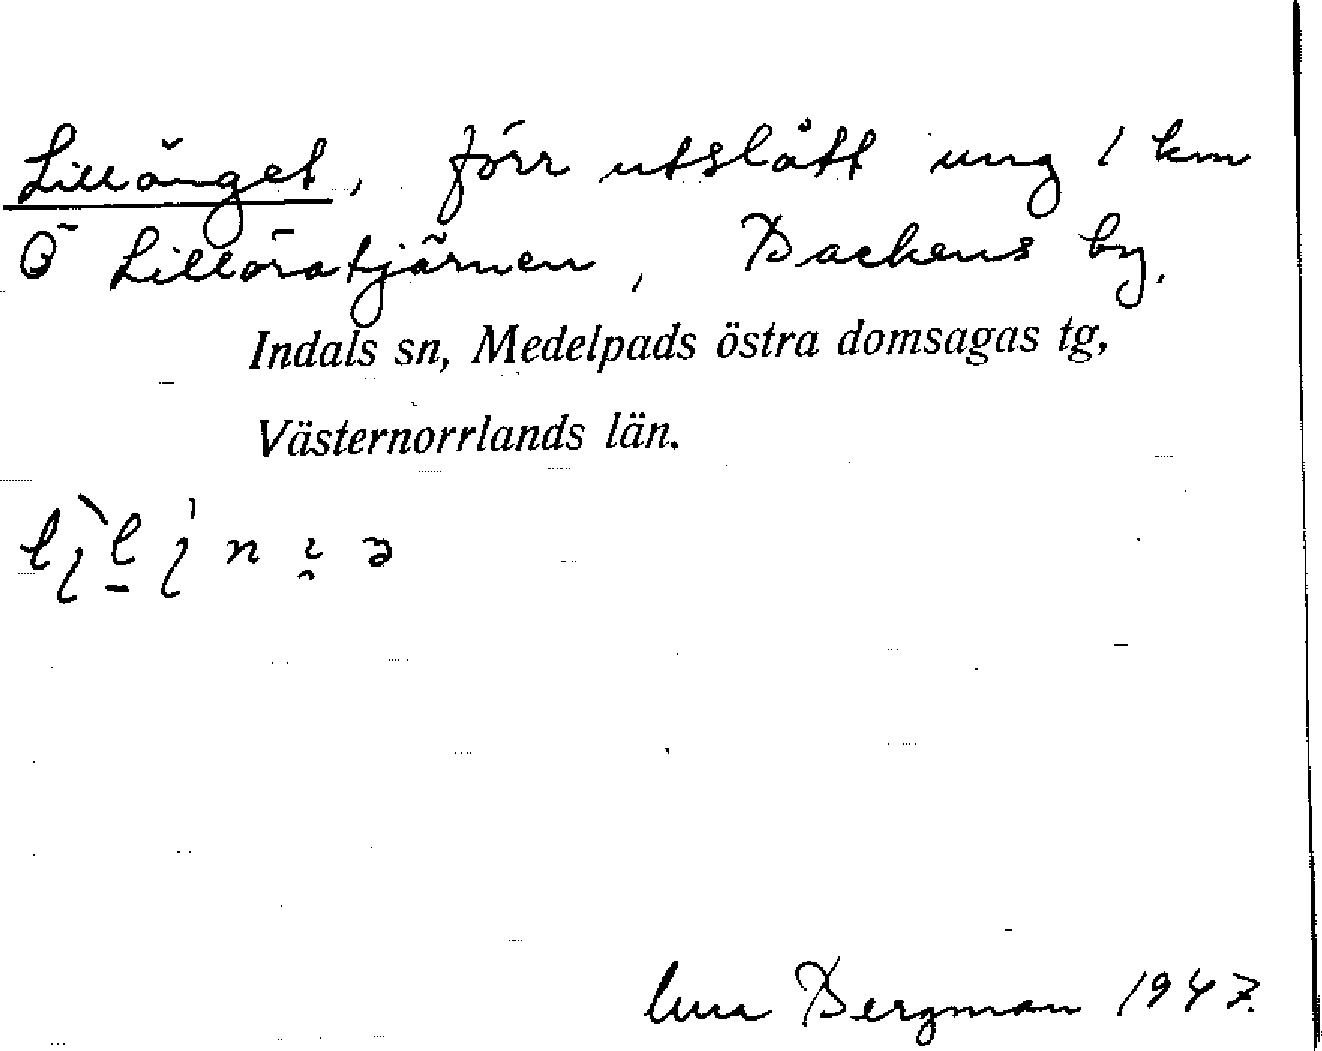 Lillänget, förr utslått ung 1 km
Ö Lillöratjärnen, Backens by.
Indals sn, Medelpads östra domsagas tg,
Västernorrlands län.
Bergman 1947.